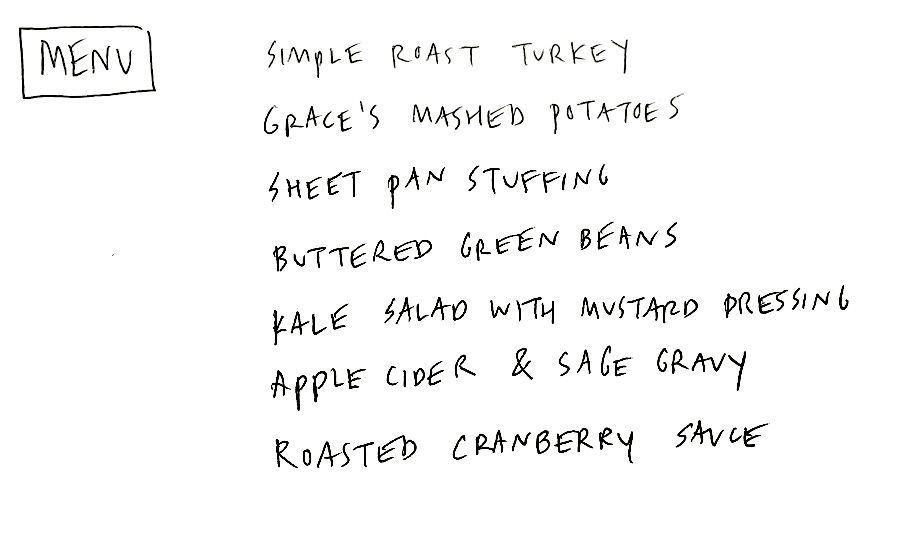 MENU
SIMPLE ROAST TURKEY
GRACE'S MASHED POTATOES
SHEET PAN STUFFING
BUTTERED GREEN BEANS
KALE SALAD WITH MUSTARD DRESSING
APPLE CIDER & SAGE GRAVY
ROASTED CRANBERRY SAUCE